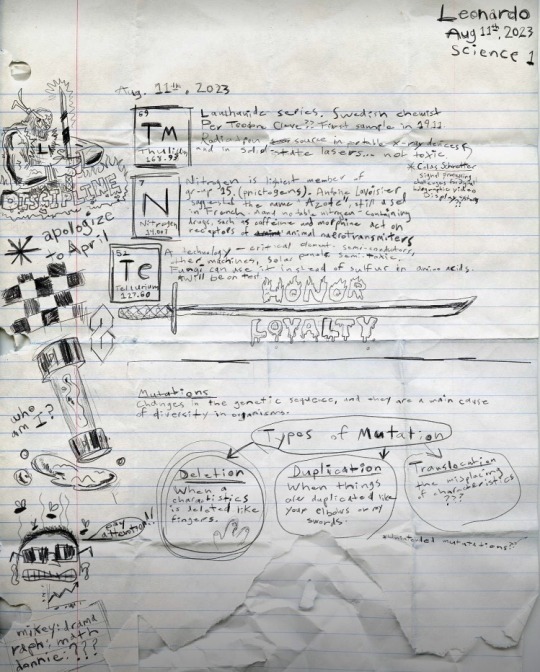 Leonardo
Aug 11th, 2023
Science 1
Aug. 11th, 2023
69
Tm
Thulium
168.93
Lanthanide series. Swedish chemist
Per Teodore Cleve?? First sample in 1911
Radiation source in portable x-ray devices
and in solid-state lasers... not toxic
7
N
Nitrogen
14.007
Nitrogen is lightest member of
group 15. (pnictogens). Antoine Lavoisier
suggested the name "Azote" still used
in French. Need notable nitrogen-containing
drugs, such as caffeine and morphine act on
receptors of animal neurotransmitters
signal processing
video
Display
??
52
Te
Tellurium
127.60
technology - critical element. semi-conductors,
other machines, solar panels semi-toxic.
Fungi can use it instead of sulfur in amino acids.
will be on test
DISCIPLINE
apologize
to April
HONOR
LOYALTY
who
am I?
Mutations
Changes in the genetic sequence, and they are a main cause
of diversity in organisms.
Types of Mutation
Deletion
When a
characteristics
is deleted like
fingers.
Duplication
When things
are duplicated like
your elbows or my
swords.
Translocation
the misplacing
of characteristics
???
mutations??
pay
attention!!
mikey: drama
raph: math
donnie: ???